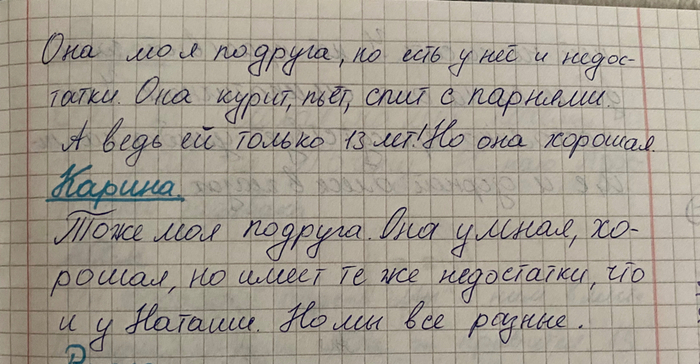 Она моя подруга, но есть у неё и недос-
татки. Она курит, пьёт, спит с парнями.
А ведь ей только 13 лет! Но она хорошая.
Карина.
Тоже моя подруга. Она умная, хо-
рошая, но имеет те же недостатки, что
и у Наташи. Но мы все разные.